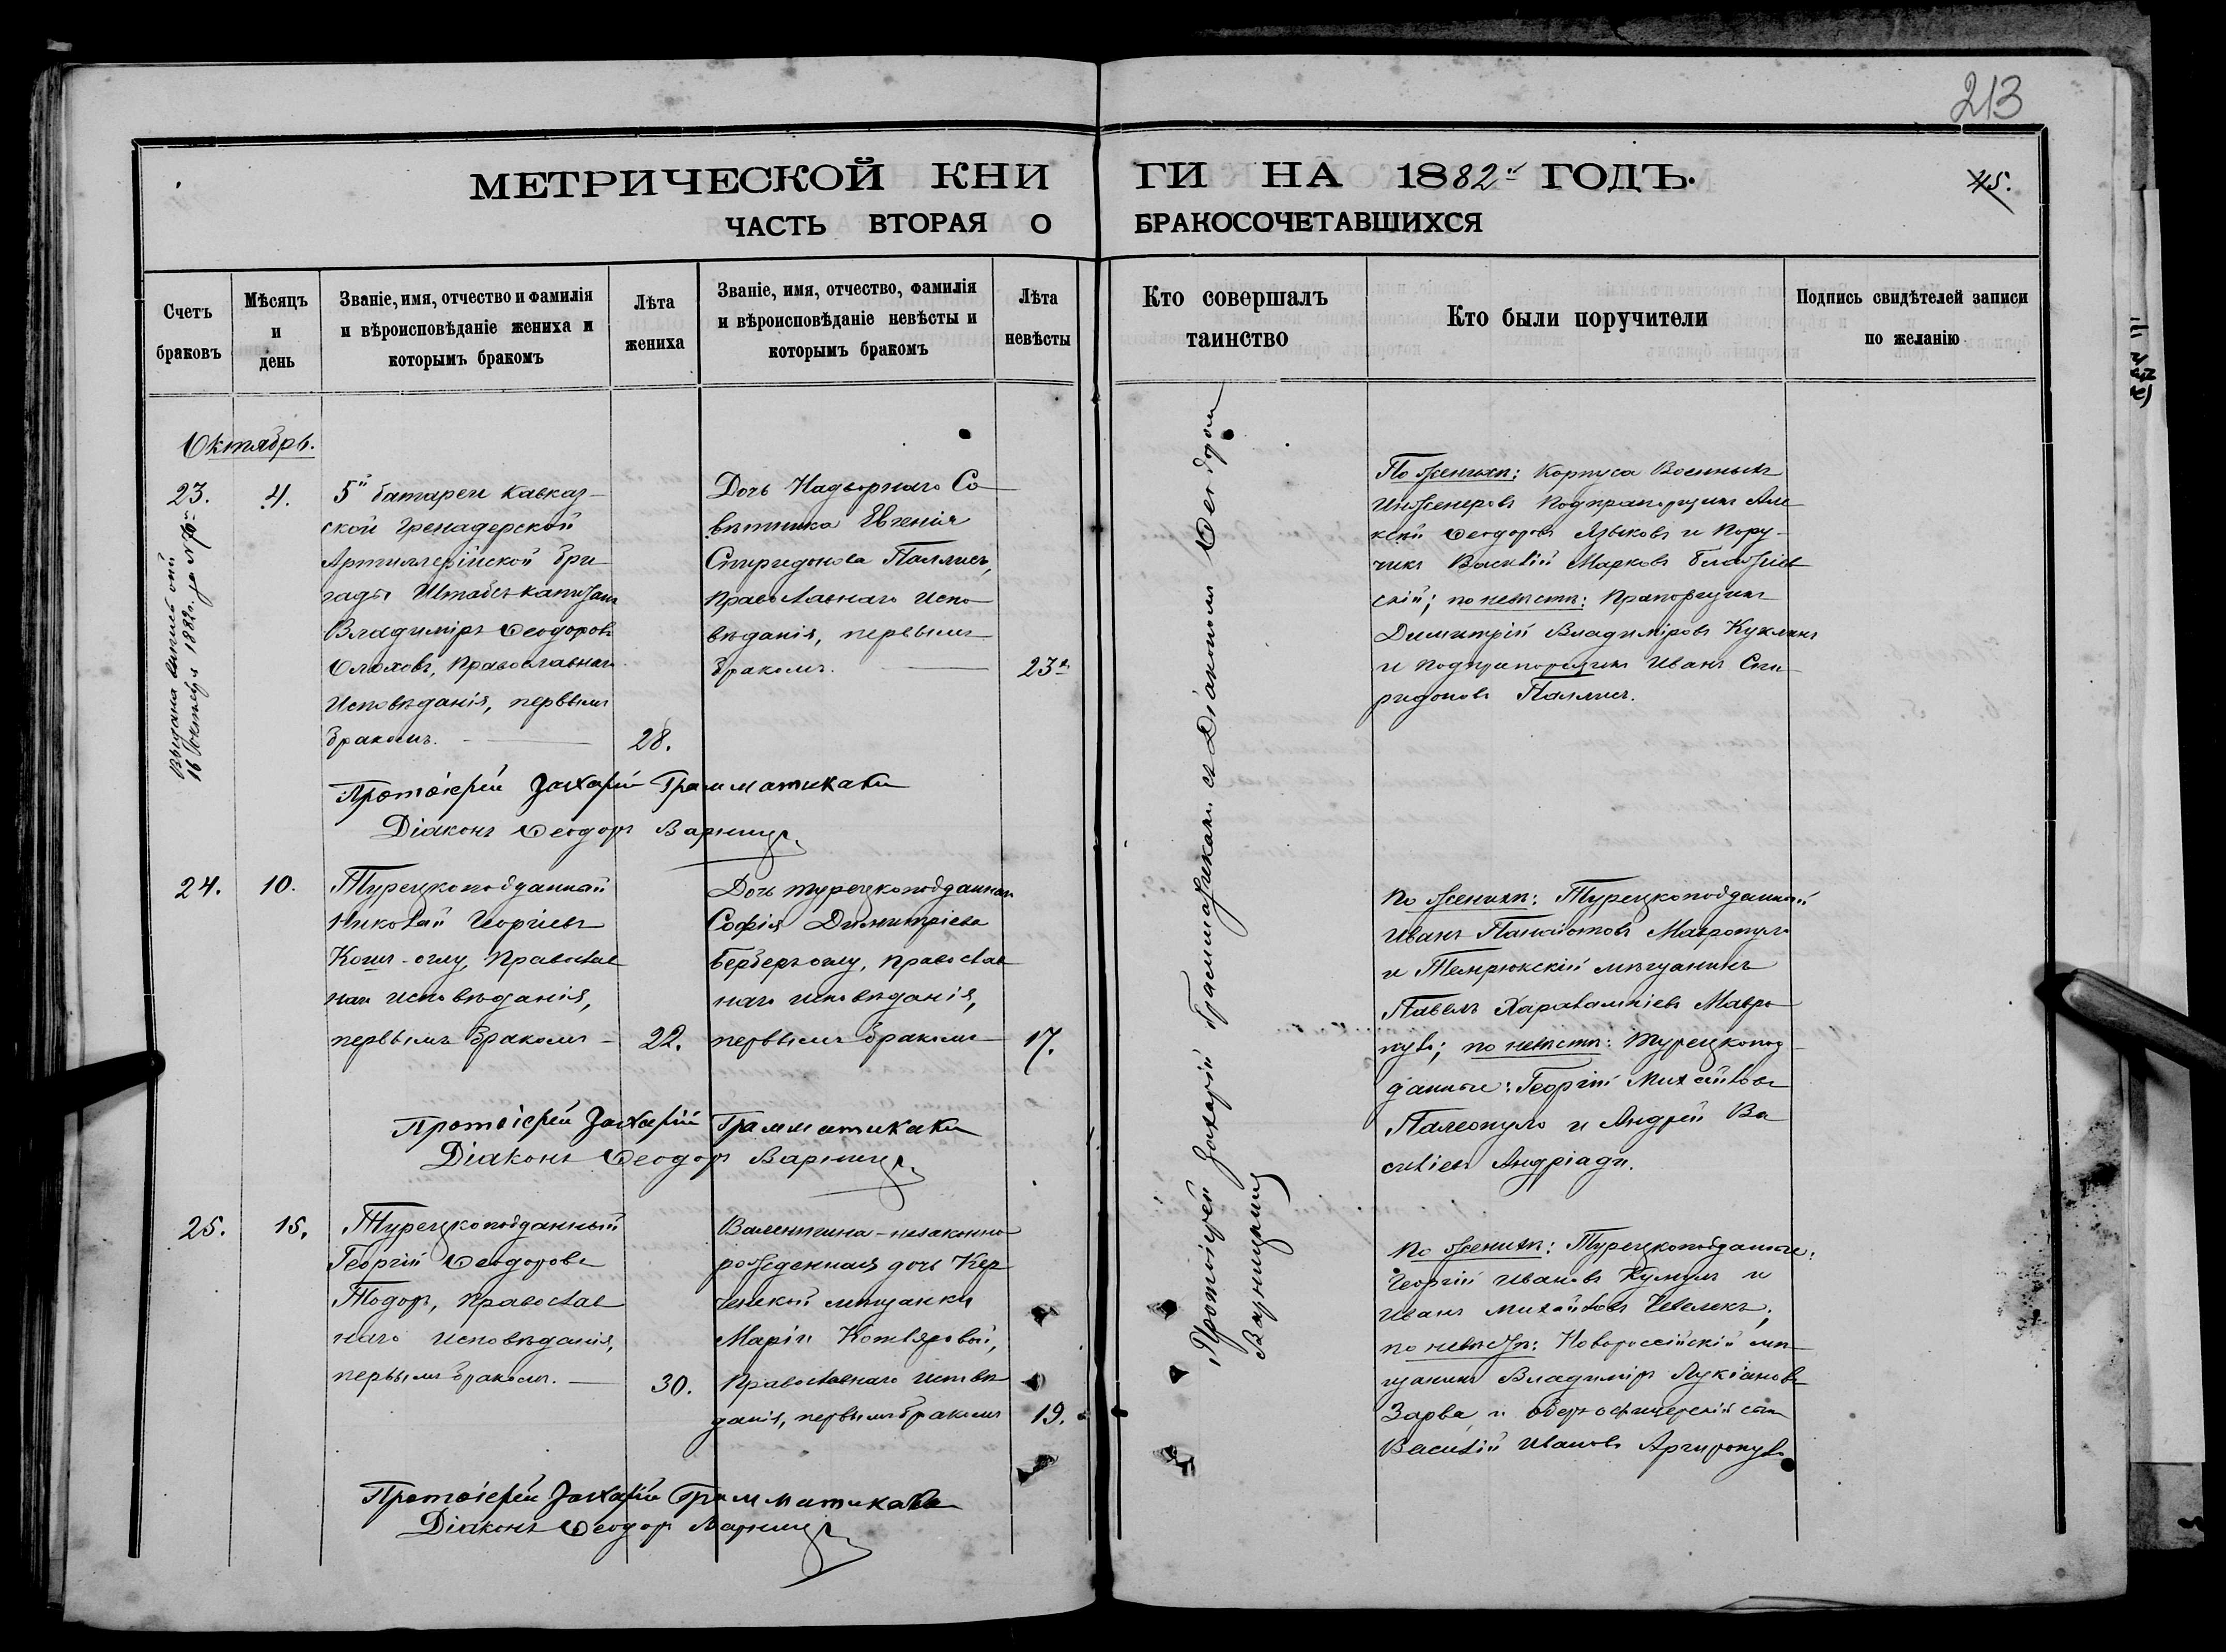 213
МЕТРИЧЕСКОЙ КНИ ГИ НА 1882й ГОДЪ.
45.
ЧАСТЬ ВТОРАЯ О БРАКОСОЧЕТАВШИХСЯ
Счетъ браковъ
Мѣсяцъ и день
Званіе, имя, отчество и фамилія
и вѣроисповѣданіе жениха и
которымъ бракомъ
Лѣта жениха
Званіе, имя, отчество, фамилія
и вѣроисповѣданіе невѣсты и
которымъ бракомъ
Лѣта невѣсты
Кто совершалъ
таинство
Кто были поручители
Подпись свидѣтелей записи
по желанію
Октябрь.
23.
4.
Выдана выпись
16 1882г. за №76
5й батареи Кавказ-
ской Гренадерской
Артиллерійской бри-
гады Штабсъ-капитанъ
Владиміръ Ѳеодоровъ
Олоховъ, Православнаго
Исповѣданія, первымъ
бракомъ.
28.
Дочь Надворнаго Со-
вѣтника Евгенія
Спиридонова Паллисъ,
Православнаго Испо-
вѣданія, первымъ
бракомъ.
23
Протоіерей Захарій Грамматикаки
Діаконъ Ѳеодоръ Варницкій
По женихѣ: Корпуса Военныхъ
Инженеровъ Подпрапорщикъ Але
ксѣй Ѳеодоровъ Языковъ и Пору-
чикъ Василій Марковъ Блажіев
скій; по невѣстѣ: Прапорщикъ
Димитрій Владиміровъ Куклинъ
и подпрапорщикъ Иванъ Спи-
ридоновъ Паллисъ.
24.
10.
Турецкоподданный
Николай Георгіевъ
Кош-оглу, Православ
наго исповѣданія,
первымъ бракомъ
22.
Дочь турецкоподданнаго
Софія Димитріева
Берберъ оглу, Православ
наго исповѣданія,
первымъ бракомъ
17.
Протоіерей Захарій Грамматикаки
Діаконъ Ѳеодоръ Варницкій
По женихѣ: Турецкоподданный
Иванъ Панаіотовъ Мавропуло
и Темрюкскій мѣщанинъ
Павелъ Харалампіевъ Мавро
пуло; по невѣстѣ: Турецкопод
данные: Георгій Михайловъ
Палеопуло и Андрей Ва
силіевъ Андріади.
25.
15.
Турецкоподданный
Георгій Ѳеодоровъ
Тодоръ, Православ
наго исповѣданія,
первымъ бракомъ.
30.
Валентина - незаконно
рожденная дочь Кер
ченской мѣщанки
Маріи Котляровой,
Православнаго исповѣ
данія, первымъ бракомъ
19.
Протоіерей Захарій Грамматикаки
Діаконъ Ѳеодоръ Варницкій
По женихѣ: Турецкоподданные:
Георгій Ивановъ и
Иванъ Михайловъ
по невѣстѣ: Новороссійскій мѣ-
щанинъ Владиміръ Лукіановъ
Зарва и оберъ офицерскій сынъ
Василій Ивановъ Аргиропуло
Протоіерей Захарій Грамматикаки съ Діакономъ Ѳеодоромъ
Варницкимъ